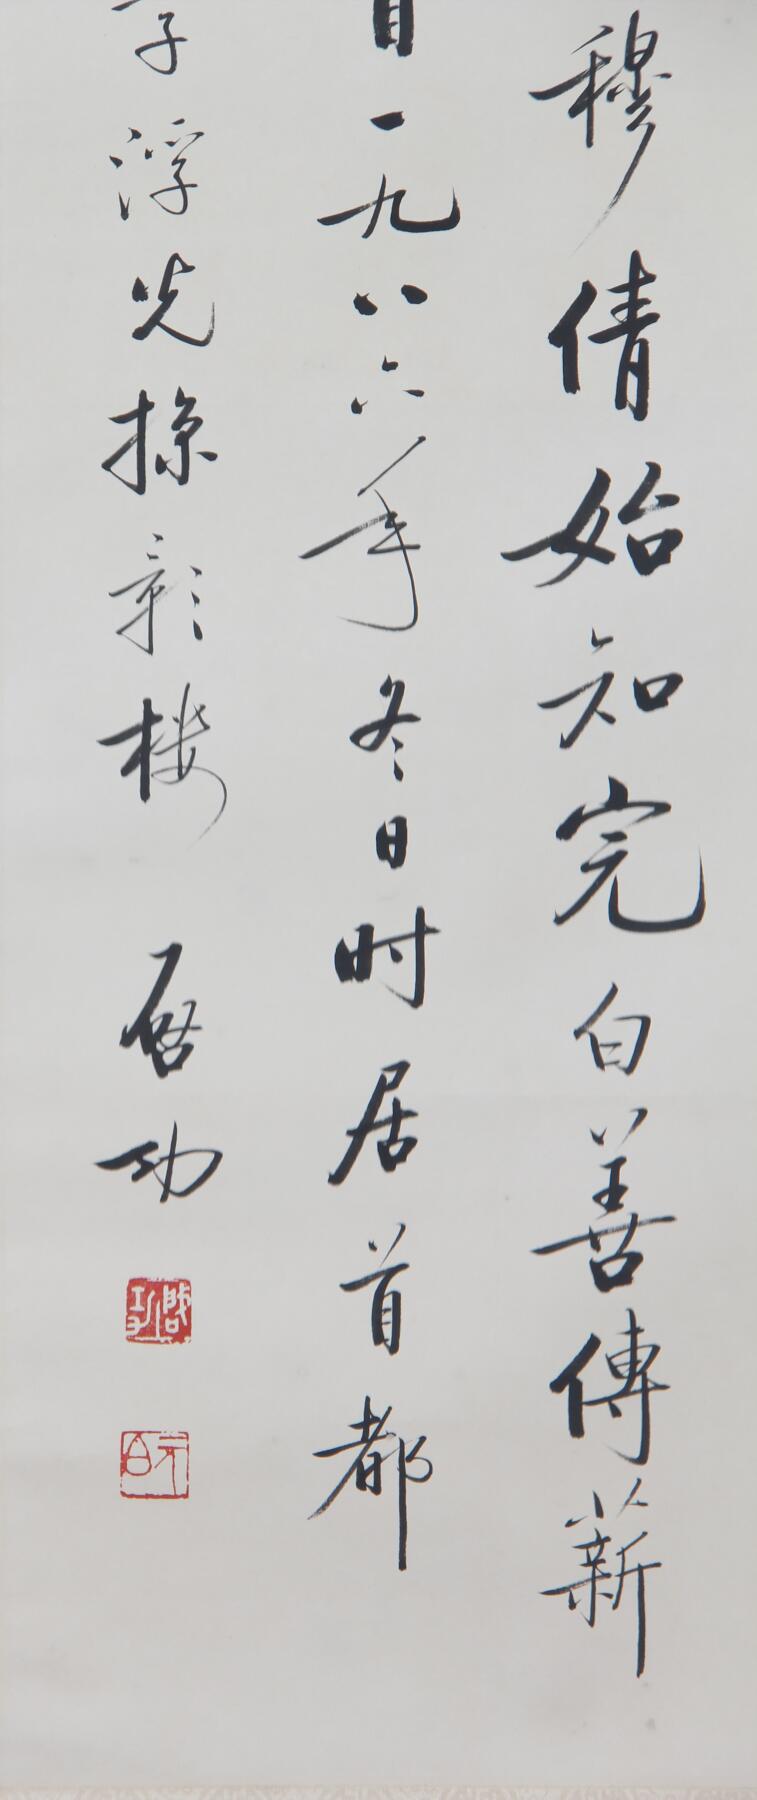 穆倩始知完白善傳薪
首一九八六年冬日时居首都
子浮光掠影楼 啟功
啟功
元白